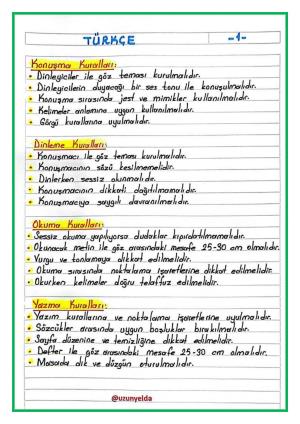 TÜRKÇE
-1-
Konuşma Kuralları:
• Dinleyiciler ile göz teması kurulmalıdır.
• Dinleyicilerin duyacağı bir ses tonu ile konuşulmalıdır.
• Konuşma sırasında jest ve mimikler kullanılmalıdır.
• Kelimeler anlamına uygun kullanılmalıdır.
• Görgü kurallarına uyulmalıdır.
Dinleme Kuralları:
• Konuşmacı ile göz teması kurulmalıdır.
• Konuşmacının sözü kesilmemelidir.
• Dinlerken sessiz olunmalıdır.
• Konuşmacının dikkati dağıtılmamalıdır.
• Konuşmacıya saygılı davranılmalıdır.
Okuma Kuralları:
• Sessiz okuma yapılıyorsa dudaklar kıpırdatılmamalıdır.
• Okunacak metin ile göz arasındaki mesafe 25-30 cm olmalıdır.
• Vurgu ve tonlamaya dikkat edilmelidir.
• Okuma sırasında noktalama işaretlerine dikkat edilmelidir.
• Okurken kelimeler doğru telaffuz edilmelidir.
Yazma Kuralları:
• Yazım kurallarına ve noktalama işaretlerine uyulmalıdır.
• Sözcükler arasında uygun boşluklar bırakılmalıdır.
• Sayfa düzenine ve temizliğine dikkat edilmelidir.
• Defter ile göz arasındaki mesafe 25-30 cm olmalıdır.
• Masada dik ve düzgün oturulmalıdır.
@uzunyelda